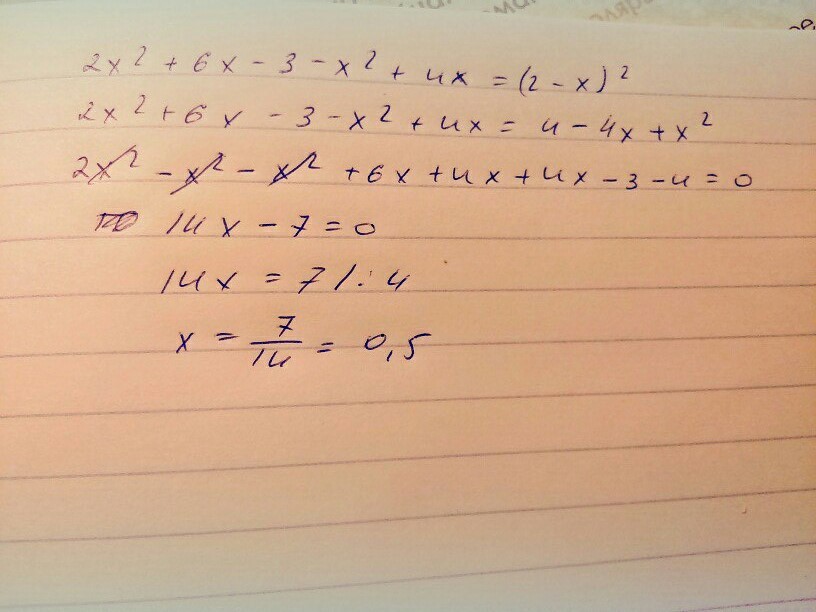 2x² + 6x - 3 - x² + 4x = (2 - x)²
2x² + 6x - 3 - x² + 4x = 4 - 4x + x²
2x² - x² - x² + 6x + 4x + 4x - 3 - 4 = 0
14x - 7 = 0
14x = 7 /: 4
x = 7/14 = 0,5